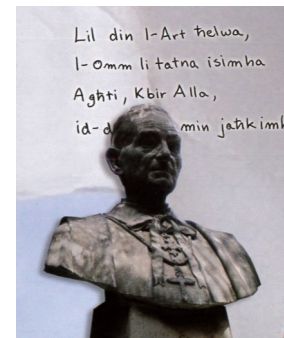 Lil din l-Art ħelwa,
l-Omm li tatna isimha
Agħti, Kbir Alla,
min jaħkimh